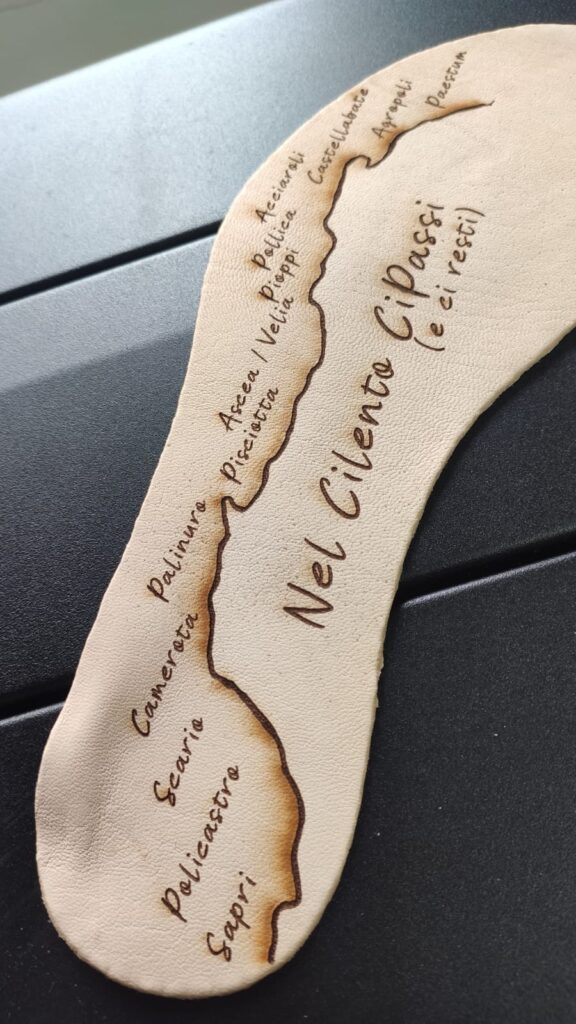 Paestum
Agropoli
Castellabate
Acciaroli
Pollica
Pioppi
Ascea / Velia
Pisciotta
Palinuro
Camerota
Scario
Policastro
Sapri
Nel Cilento CiPassi
(e ci resti)